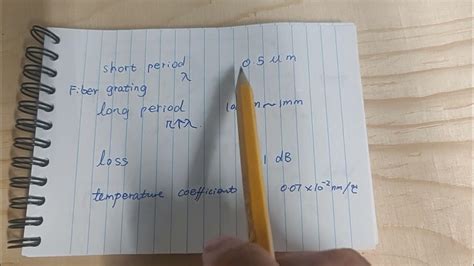 short period 0 5 μm
λ
Fiber grating
long period ~ 1mm
loss 1 dB
temperature coefficient 0.07×10⁻² nm/℃